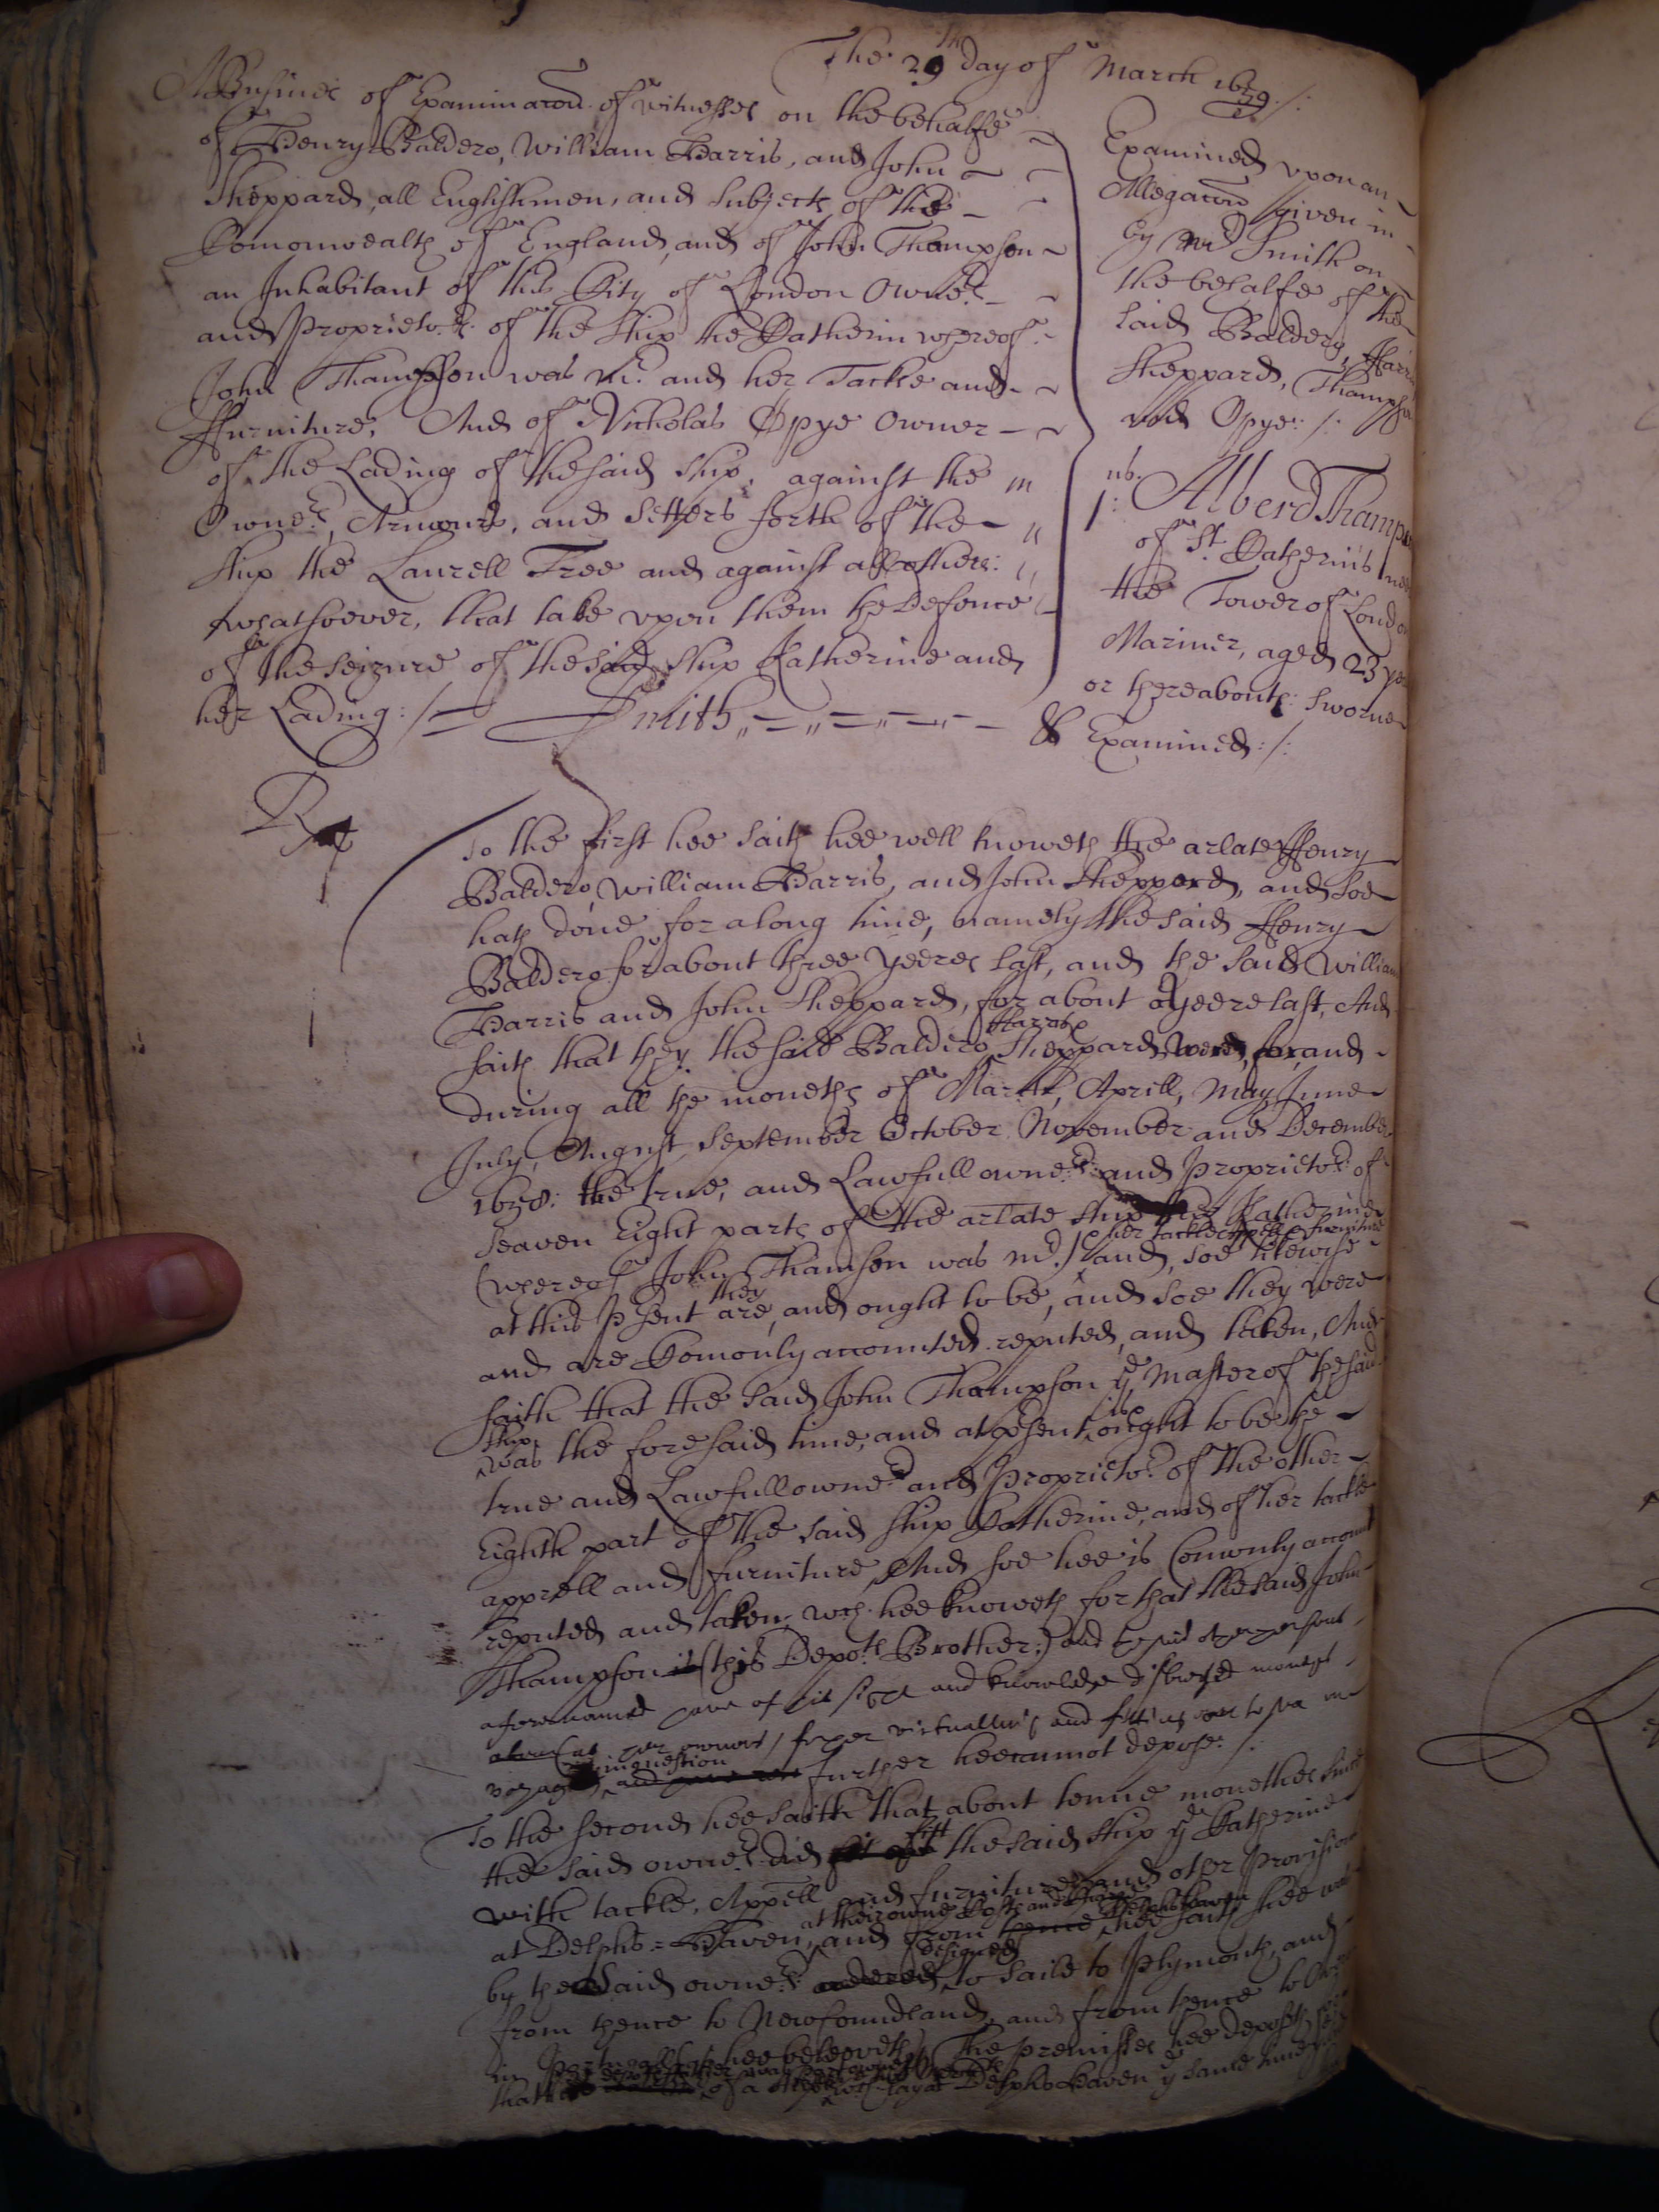 The 29th day of March 1659:/:
A Busines of Examinacon of witnesses on the behalfe
of Henry Baldero, William Harris, and John
Sheppard, all Englishmen, and subjects of the
Comonwealth of England, and of John Thompson
an Inhabitant of the City of London Owners
and Proprietors of the Ship the Katherin whereof
John Thampson was Mr. and her Tackle and
ffurniture, And of Nicholas Opye Owner
of the Lading of the said ship, against the
Owners, Armours, and Setters forth of the
Ship the Laurell Tree and against all others:
whatsoever, that take upon them the Defence
of the seizure of the said Ship Katherine and
her Lading:/ Smith
Examined upon an
Allegacon given in
by Mr Smith on
the behalfe of the
said Baldero, Harris
Sheppard, Thampson
and Opye:/:
1:
Alberd Thampson
of St. Katherins
the Tower of London
Mariner, aged 23 yeares
or thereabouts: sworne
& Examined:/:
To the first hee saith hee well knoweth the arlate Henry
Baldero, William Harris, and John Sheppard, and soe
hath done for a long time, namely the said Henry
Baldero for about three yeeres last, and the said William
Harris and John Sheppard, for about a yeere last, And
saith that they the said Baldero Harris Sheppard were, for, and
during all the moneths of March, Aprill, May June
July, August, September October November and December
1658: the true, and Lawfull owners and Proprietors of
seaven Eight parts of the arlate ship the Katherine
her tackle apprell & furniture
(whereof John Thamson was mr.) and, soe likewise
at this psent they are, and ought to be, and soe they were
and are Comonly accounted reputed, and taken, And
saith that the said John Thampson ye Master of the said
ship was the foresaid time, and at psent is & ought to be the
true and Lawfull owner and Proprietor of the other
Eighth part of the said ship Katherine, and of her tackle
apprell and furniture, And soe hee is Comonly accounted
reputed and taken, wch. hee knoweth for that the said John
Thampson is (this Depots Brother:) and the said other persons
aforenamed have of his sight and knowledge disbursed moneys
owners) for her victualling and fitting out to sea
voyage in question further hee cannot depose:/:
To the second hee saith that about tenne monethes since
the said owners did fitt the said ship ye Katherine
with tackle, Appell and furniture and other Provision
at Delphs-Haven, at their owne Costs and Charges and from Delphs haven hee saith hee was
by the said owners designed to saile to Plymouth, and
from thence to Newfoundland, and from thence to
in Portugall hee beleeveth, The premisses hee deposeth
that of a ship lay at Delphs Haven ye same time